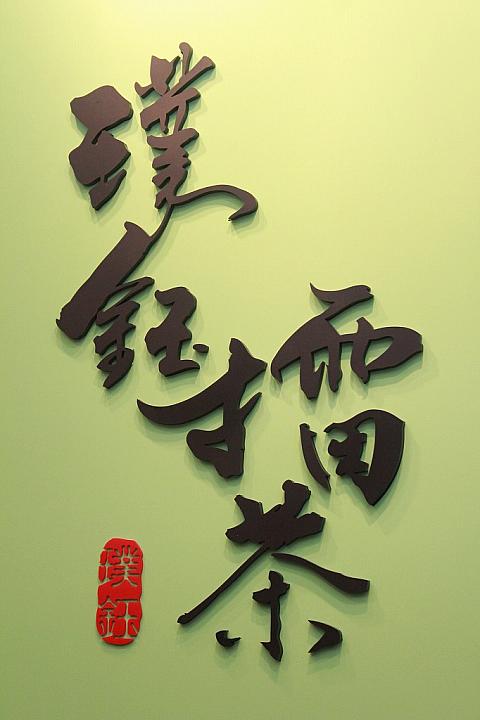 璞鈺擂茶
璞鈺